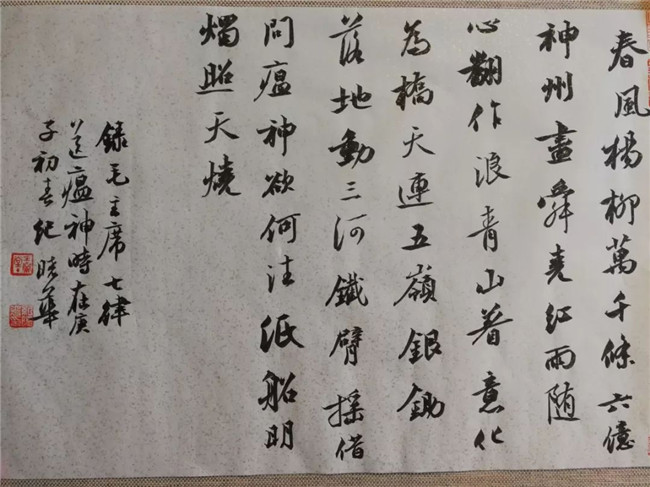 春風楊柳萬千條六億
神州盡舜堯紅雨随
心翻作浪青山着意化
為橋天連五嶺銀鋤
落地動三河鐵臂摇借
問瘟神欲何往纸船明
燭照天燒
錄毛主席七律
送瘟神時在庚
子初春纪華